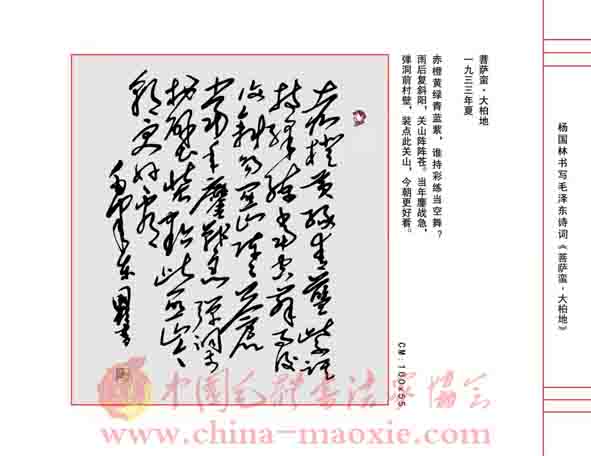 杨国林书写毛泽东诗词《菩萨蛮·大柏地》
菩萨蛮·大柏地
一九三三年夏
赤橙黄绿青蓝紫，谁持彩练当空舞？
雨后复斜阳，关山阵阵苍。当年鏖战急，
弹洞前村壁，装点此关山，今朝更好看。
CM:100×55
赤橙黄绿青蓝紫谁
持彩练当空舞雨后
复斜阳关山阵阵苍
当年鏖战急弹洞前
村壁装点此关山今
朝更好看
毛泽东 国林书
中国毛体书法家协会
www.china-maoxie.com